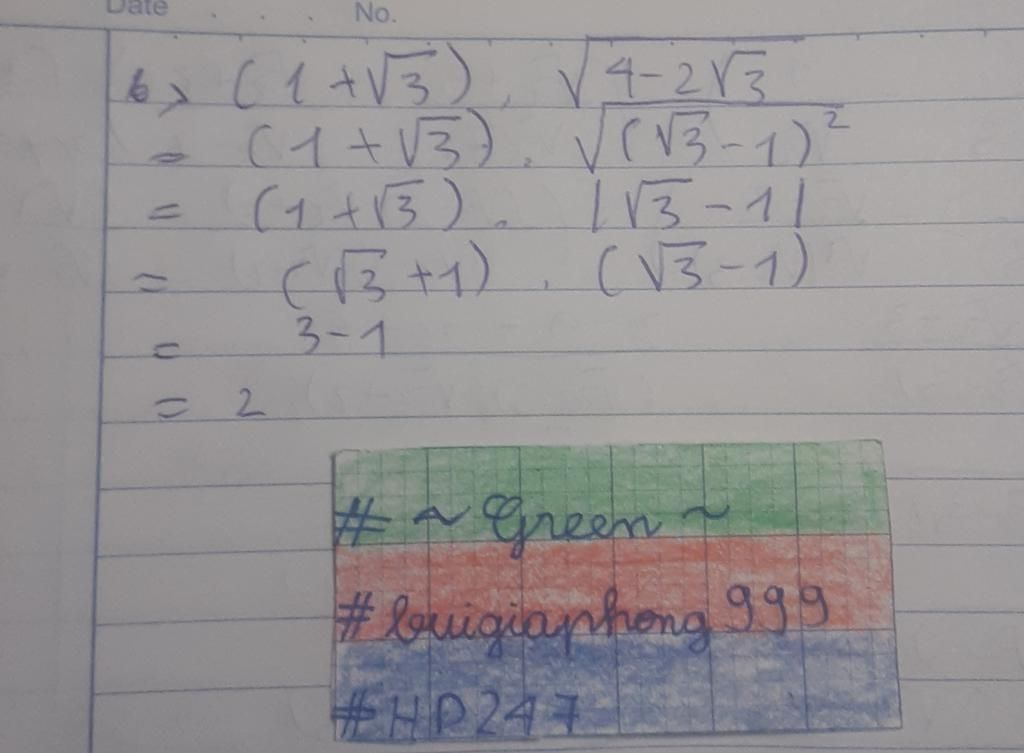 Date . . . . No.
b> (1+√3) . √(4-2√3)
= (1+√3) . √((√3-1)²)
= (1+√3) . |√3-1|
= (√3+1) . (√3-1)
= 3-1
= 2
# ~ Green ~
# buigiaphong 999
#HD247